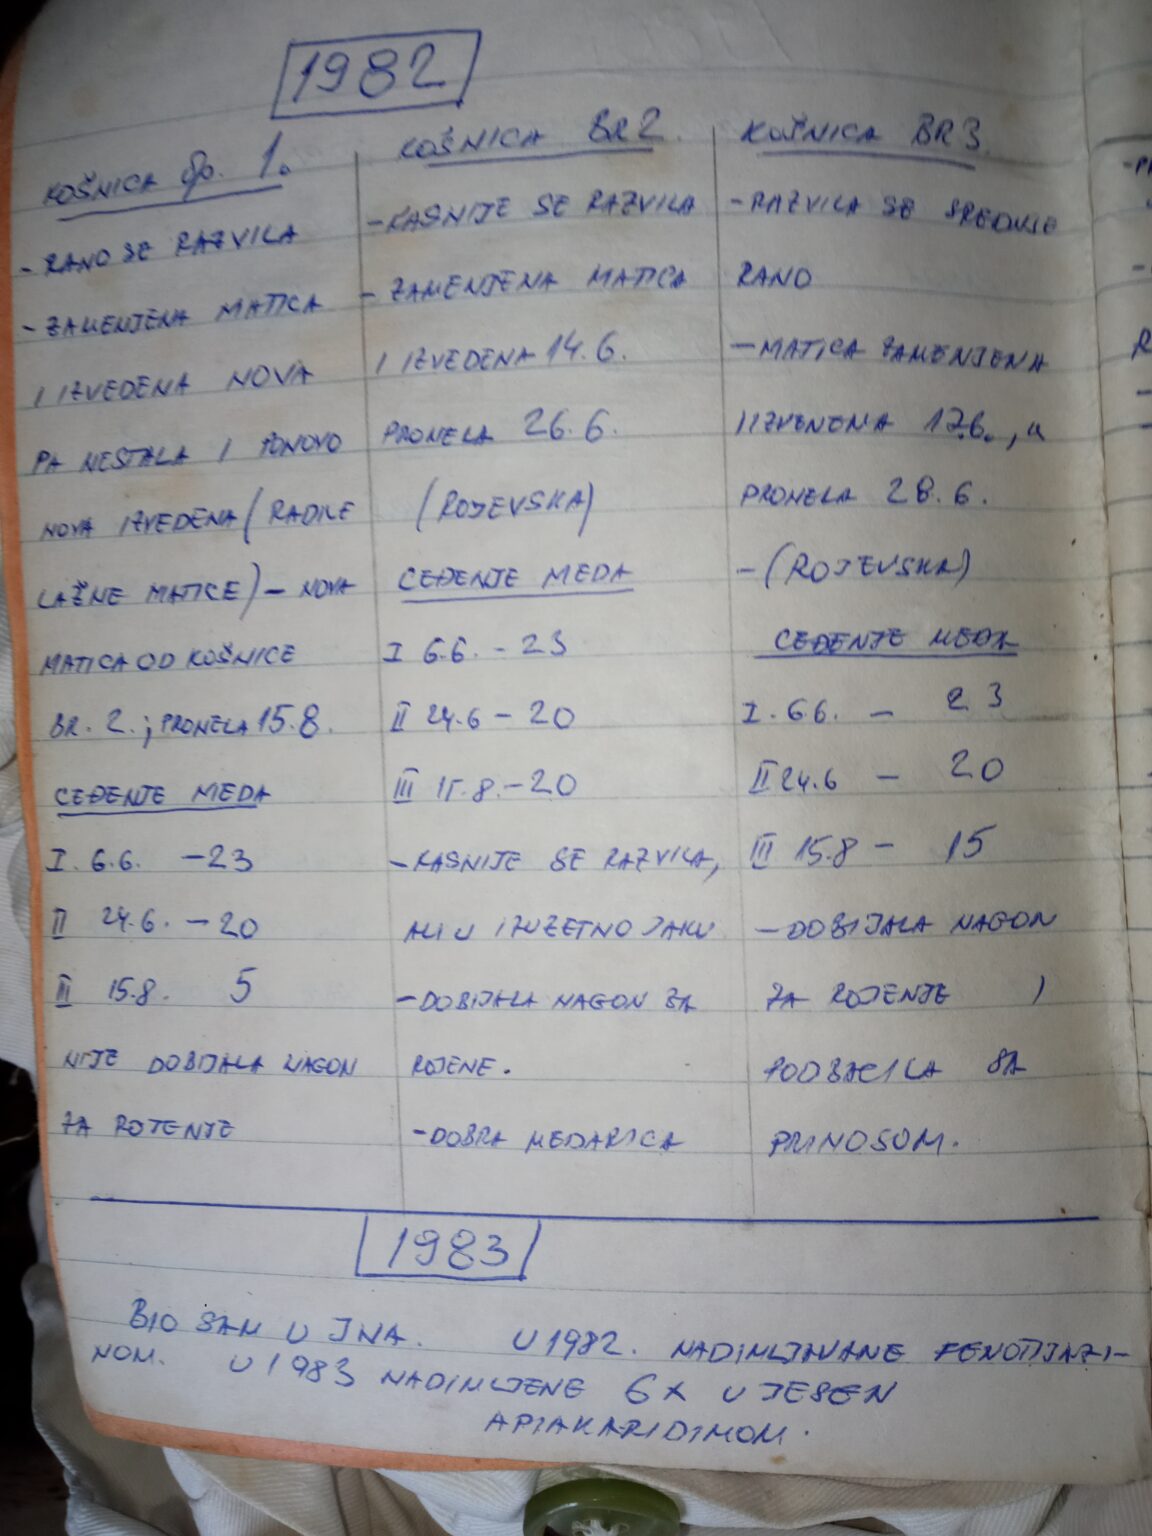 1982
KOŠNICA бр. 1.
- RANO SE RAZVILA
- ZAMENJENA MATICA
I IZVEDENA NOVA
PA NESTALA I PONOVO
NOVA IZVEDENA (RADILE
LAŽNE MATICE) - NOVA
MATICA OD KOŠNICE
BR. 2.; PRONELA 15.8.
CEĐENJE MEDA
I. 6.6. - 23
II 24.6. - 20
III 15.8. 5
NIJE DOBIJALA NAGON
ZA ROJENJE
KOŠNICA BR 2.
- KASNIJE SE RAZVILA
- ZAMENJENA MATICA
I IZVEDENA 14.6.
PRONELA 26.6.
(ROJEVSKA)
CEĐENJE MEDA
I 6.6. - 23
II 24.6 - 20
III 15.8. - 20
- KASNIJE SE RAZVILA,
ALI U IZUZETNO JAKU
- DOBIJALA NAGON ZA
ROJENE.
- DOBRA MEDARICA
KOŠNICA BR 3.
- RAZVILA SE SREDNJE
RANO
- MATICA ZAMENJENA
I IZVEDENA 17.6., a
PRONELA 28.6.
- (ROJEVSKA)
CEĐENJE MEDA
I. 6.6. - 23
II 24.6 - 20
III 15.8 - 15
- DOBIJALA NAGON
ZA ROJENJE I
PODBACILA SA
PRINOSOM.
1983
BIO SAM U JNA. U 1982. NADIMLJAVANE FENOTIJAZI-
NOM. U 1983 NADIMLJENE 6X U JESEN
APIAKARIDIMOM.